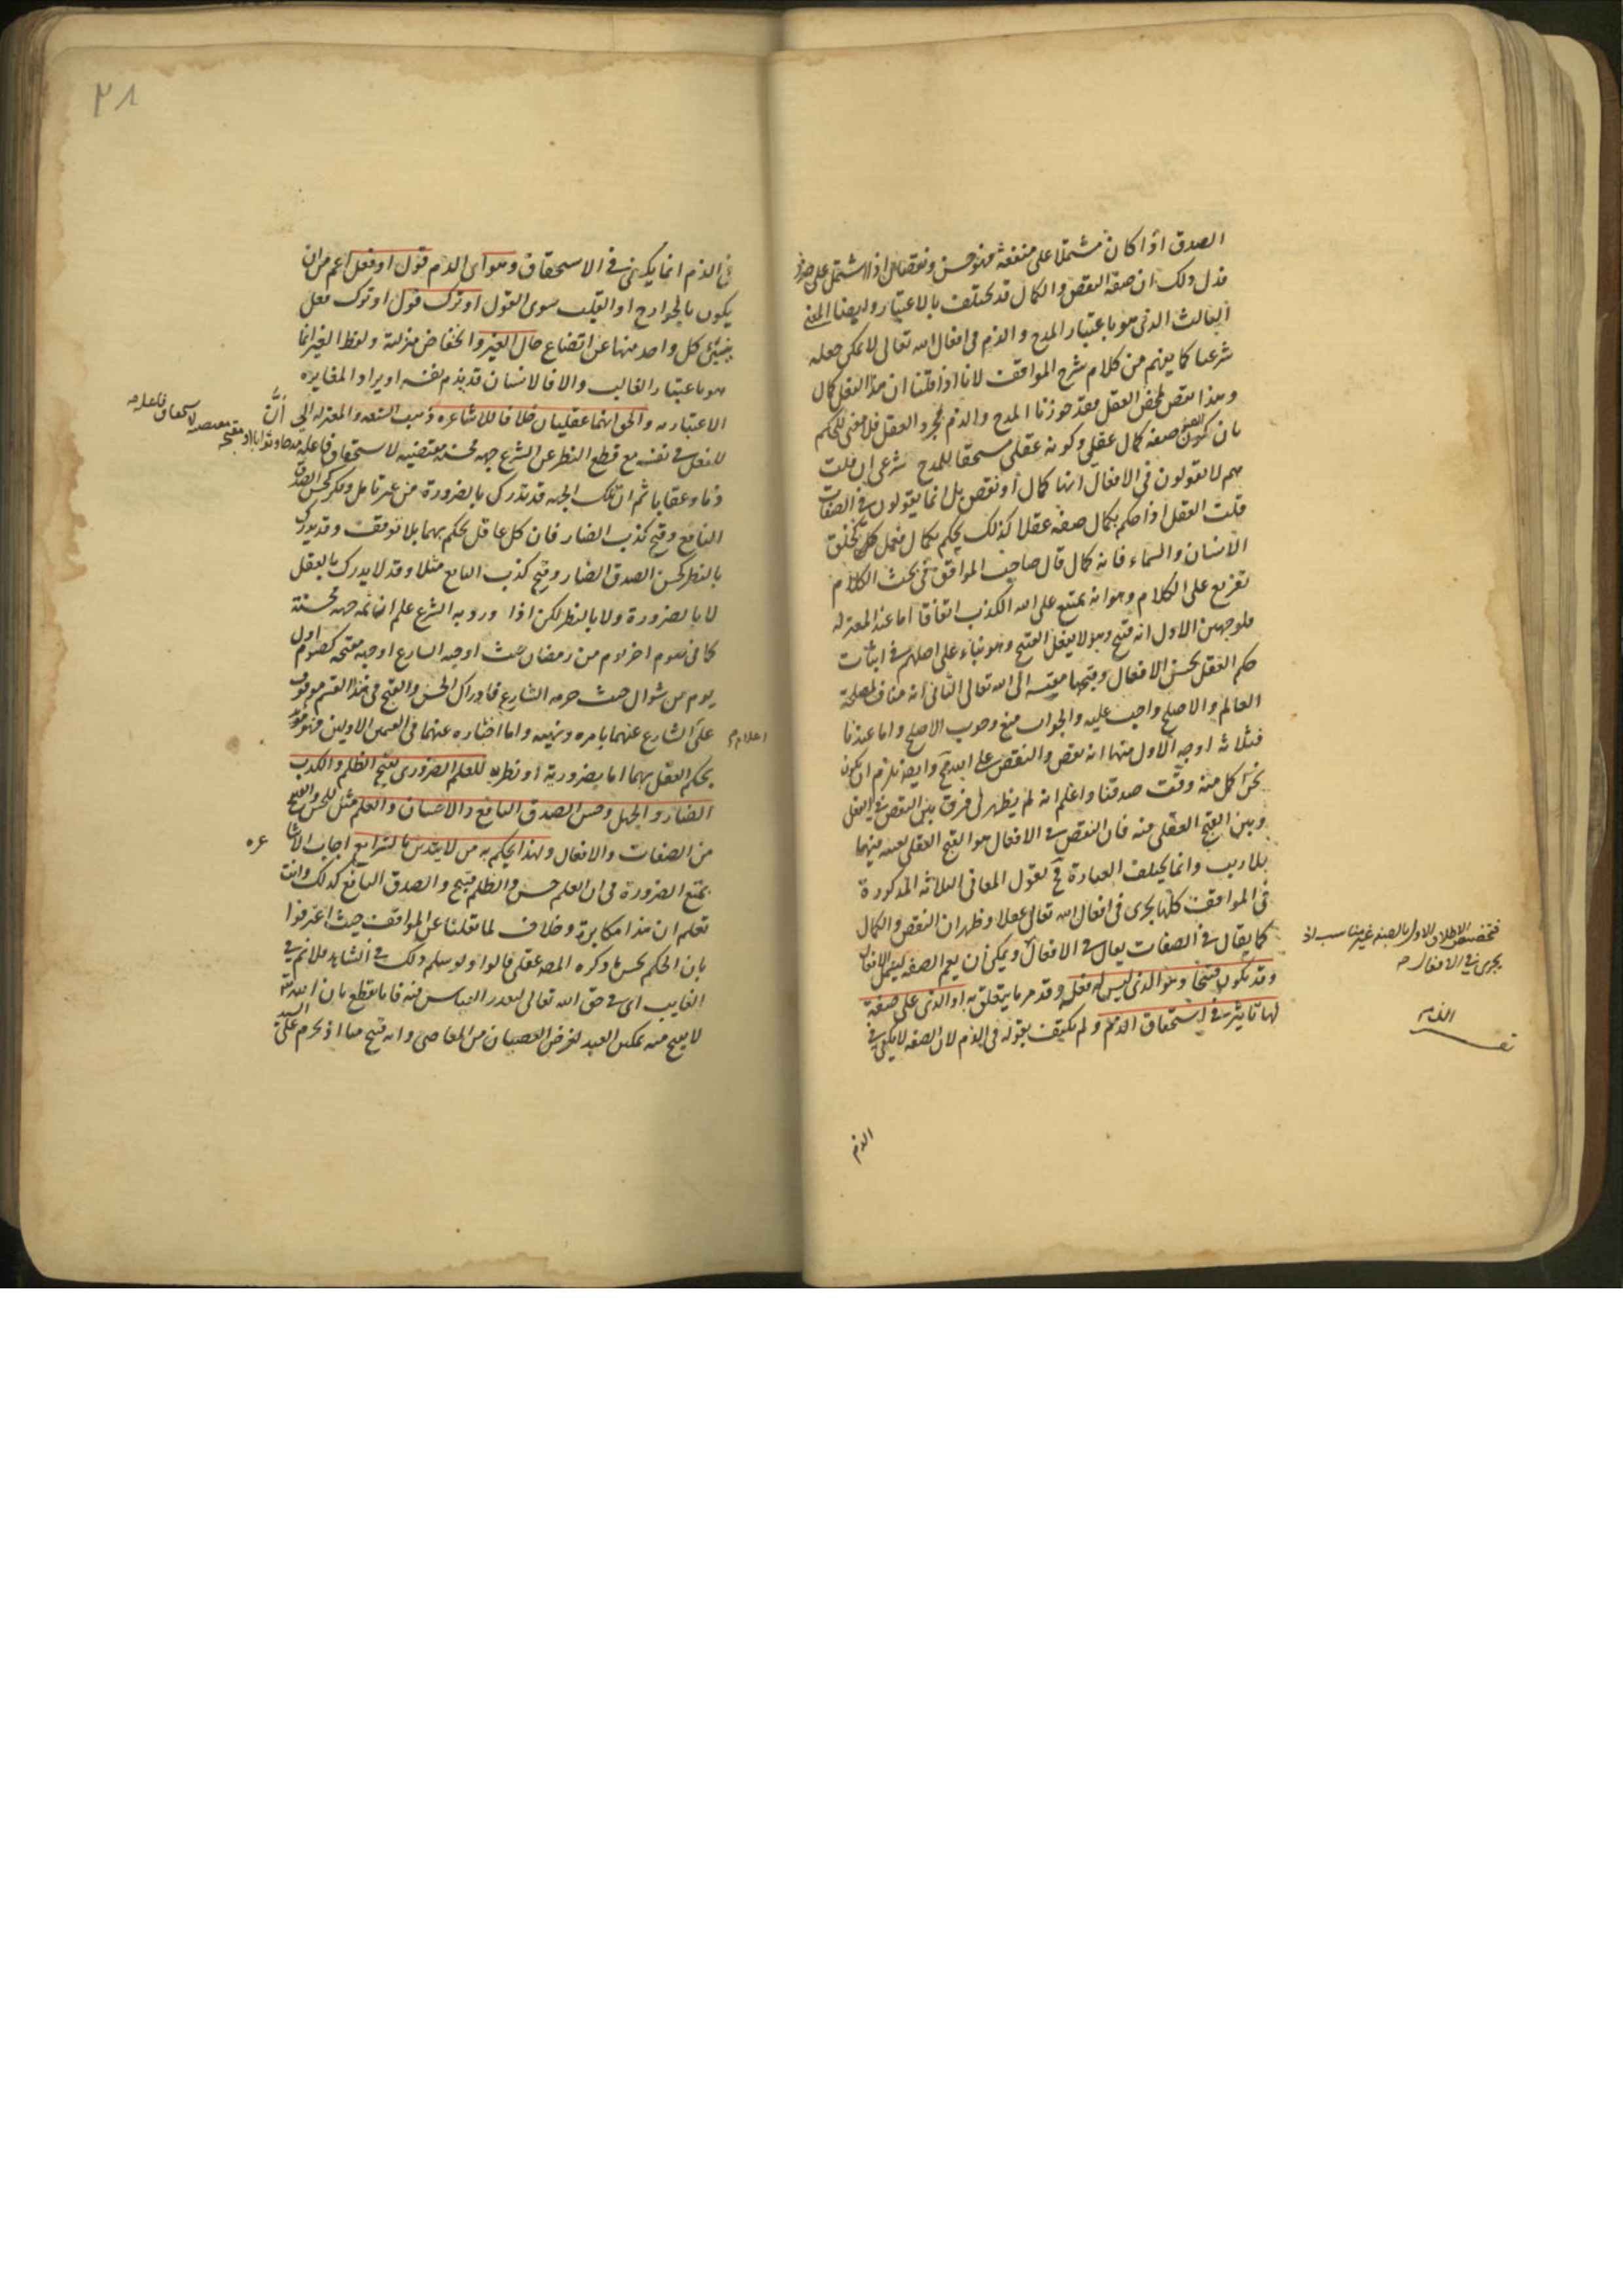 الصدق اذا كان مشتملا على منفعة فهو حسن ونقصا اذا اشتمل على ضرر
فدل ذلك ان صفة النقص والكمال قد تختلف بالاعتبار وايضا المعنى
الثالث الذى هو باعتبار المدح والذم فى افعال الله تعالى لا يمكن جعله
شرعيا كما يفهم من كلام شرح المواقف لانا اذا قلنا ان هذا الفعل كمال
وهذا نقص لمحض العقل فقد جوزنا المدح والذم بمجرد العقل فلا معنى للحكم
بان كون الفعل صفة كمال عقلى وكونه مستحقا للمدح شرعى ان قلت
هم لا يقولون فى الافعال انها كمال او نقص بل انما يقولون فى الصفات
قلت العقل اذا حكم بكمال صفة عقلا كذلك يحكم بكمال فعل كخلق
الانسان والسماء فانه كمال قال صاحب المواقف فى بحث الكلام
تفريع على الكلام وهو انه يمتنع على الله الكذب اتفاقا اما عند المعتزلة
فلوجهين الاول انه قبيح وهو لا يفعل القبيح وهو بناء على اصلهم فى اثبات
حكم العقل بحسن الافعال وقبحها مقيسة الى الله تعالى الثانى انه مناف لمصلحة
العالم والاصلح واجب عليه والجواب منع وجوب الاصلح واما عندنا
فثلاثة اوجه الاول منها انه نقص والنقص على الله مح وايضا يلزم ان يكون
نحن اكمل منه وقت صدقنا واعلم انه لم يظهر لى فرق بين النقص فى الفعل
وبين القبح العقلى منه فان النقص فى الافعال هو القبح العقلى بعينه فيها
بلا ريب وانما يختلف العبارة فح نقول المعانى الثلاثة المذكورة
فى المواقف كلها يجرى فى افعال الله تعالى عقلا وظهر ان النقص والكمال
كما يقال فى الصفات يقال فى الافعال ويمكن ان يعم الصفة ليشمل الافعال
وقد يكون قبيحا وهو الذى ليس له فعله وقد مر ما يتعلق به او الذى على صفة
لها تاثير فى استحقاق الذم ولم يكتف بقوله فى الذم لان الصفة لا يكفى فى
فتخصيص الاطلاق الاول بالصفة غير مناسب اذ
يجرى فى الافعال
الذم
٢٨
فى الذم انما يكفى فى الاستحقاق وهو اى الذم قول او فعل اعم من ان
يكون بالجوارح او القلب سوى القول او ترك قول او ترك فعل
ينبئ كل واحد منها عن اتضاع حال الغير وانخفاض منزلته ولفظ الغير انما
هو باعتبار الغالب والا فالانسان قد يذم نفسه او يراد المغايرة
الاعتبارية والحق انهما عقليان خلافا للاشاعرة ذهب الشيعة والمعتزلة الى أنّ
للفعل فى نفسه مع قطع النظر عن الشرع جهة محسنة مقتضية لاستحقاق فاعله مدحا وثوابا او مقبحة مقتضية لاستحقاق فاعله
ذما وعقابا ثم ان تلك الجهة قد تدرك بالضرورة من غير تامل وفكر كحسن الصدق
النافع وقبح كذب الضار فان كل عاقل يحكم بهما بلا توقف وقد يدرك
بالنظر كحسن الصدق الضار وقبح كذب النافع مثلا وقد لا يدرك بالعقل
لا بالضرورة ولا بالنظر لكن اذا ورد به الشرع علم ان ثمة جهة محسنة
كما فى صوم اخر يوم من رمضان حيث اوجبه الشارع او جهة مقبحة كصوم اول
يوم من شوال حيث حرمه الشارع فادراك الحسن والقبح فى هذا القسم موقوف
على الشارع عنهما بامره ونهيه واما اخباره عنهما فى القسمين الاولين فهو مؤيد
يحكم العقل بهما اما بضرورية او نظرية للعلم الضرورى بقبح الظلم والكذب
الضار والجهل وحسن الصدق النافع والاحسان والعلم مثل للحسن والقبح
من الصفات والافعال ولهذا يحكم به من لا يتدين بالشرايع اجاب الاشاعره
بمنع الضرورة فى ان العلم حسن والظلم قبيح والصدق النافع كذلك وانت
تعلم ان هذا مكابرة وخلاف لما نقلنا عن المواقف حيث اعترفوا
بان الحكم بحسن ما ذكره المص عقلى قالوا ولو سلم ذلك فى الشاهد فلا نم فى
الغايب اى فى حق الله تعالى لتعذر القياس فيه فانا نقطع بان الله تعه
لا يقبح منه تمكين العبد لغرض العصيان من المعاصى وانه قبيح منا اذ يحرم على السيد